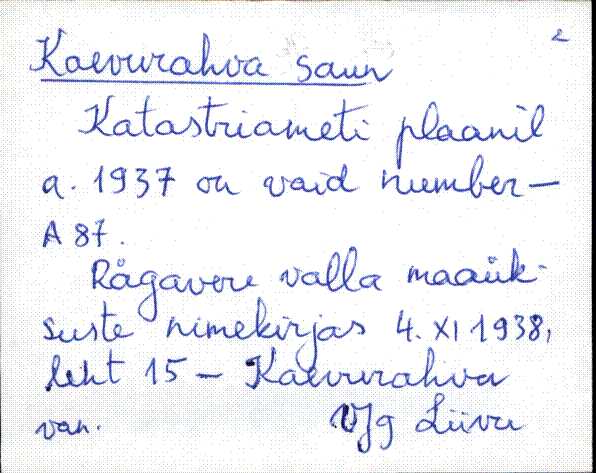 2
Kaevurahva saun
Katastriameti plaanil
a. 1937 on vaid number –
A 87.
Rägavere valla maaük-
suste nimekirjas 4. XI 1938,
leht 15 – Kaevurahva
van. VJg Liivu